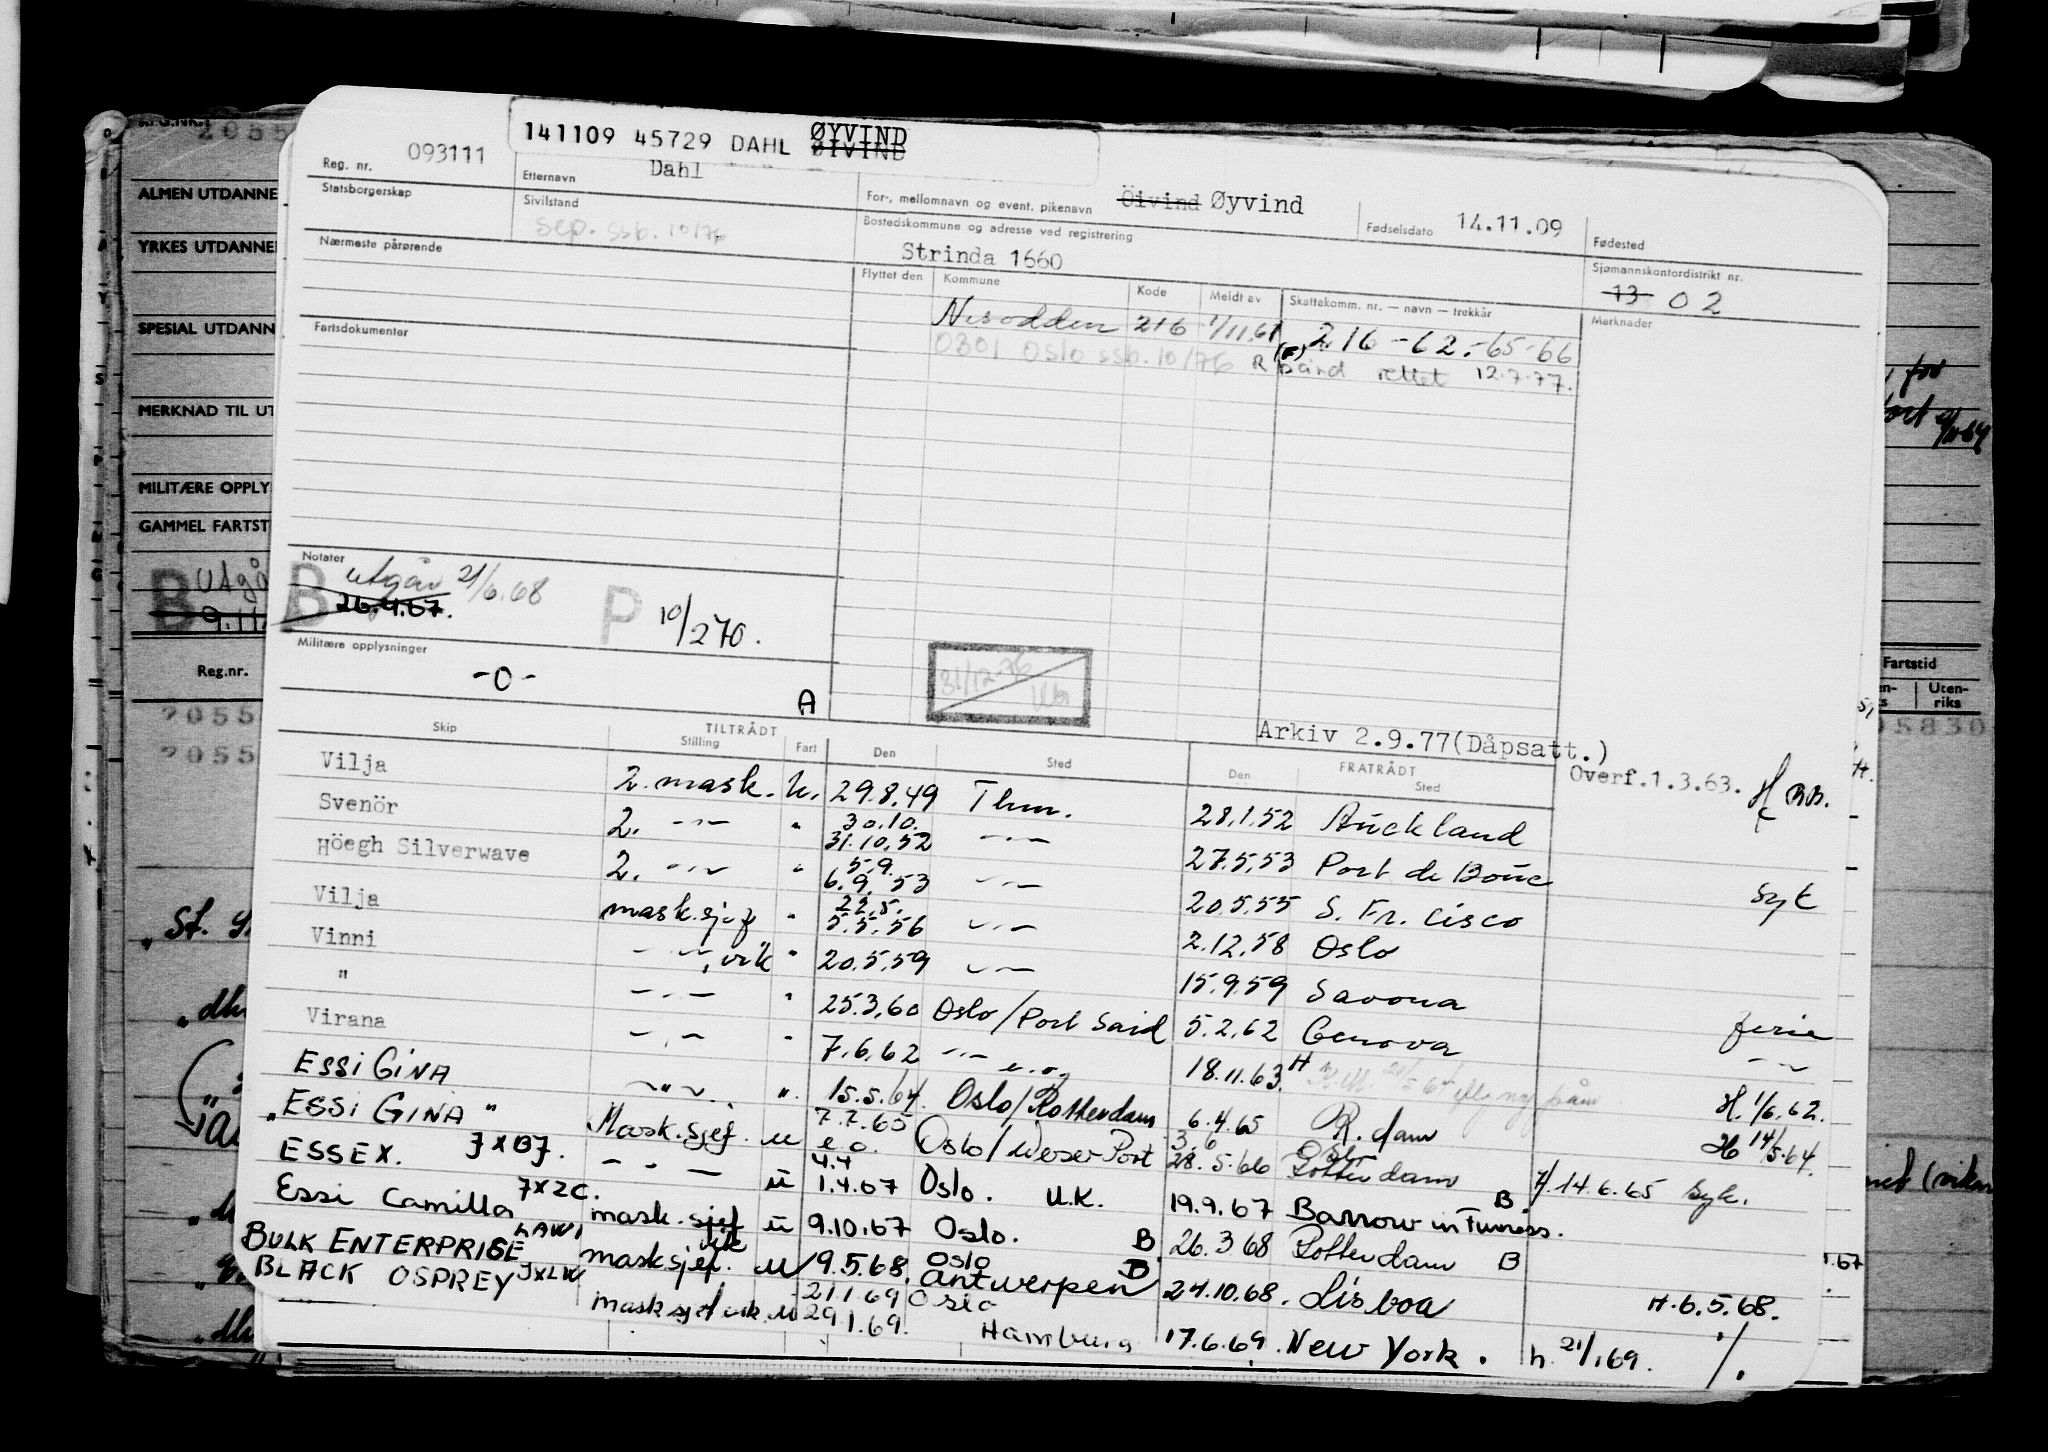 141109 45729 DAHL ØYVIND
ØIVIND
Reg. nr. 093111
Etternavn Dahl
For-, mellomnavn og event. pikenavn Öivind Øyvind
Fødselsdato 14.11.09
Fødested
Statsborgerskap
Sivilstand
sep. ssb. 10/76
Bostedskommune og adresse ved registrering
Strinda 1660
Sjømannskontordistrikt nr.
13 02
Nærmeste pårørende
Flyttet den Kommune Kode Meldt av Skattekomm. nr. — navn — trekkår
Merknader
Nesodden 216 1/11.61 216-62.-65-66
0301 Oslo ssb. 10/76 R (F) bånd rettet 12.7.77.
Fartsdokumenter
Notater
B utgår 21/6.68
26.4.67.
P 10/270.
Militære opplysninger
-0-
A
31/12-76
Arkiv 2.9.77(Dåpsatt.)
Overf.1.3.63.
Skip TILTRÅDT Stilling Fart Den Sted FRATRÅDT Den Sted
Vilja 2. mask. u. 29.8.49 Thm. 28.1.52 Auckland
Svenör 2. -"- " 30.10. 31.10.52 -"- 27.5.53 Port de Bouc
Höegh Silverwave 2. -"- " 5.9. 6.9.53 -"- 20.5.55 S. Fr. cisco syk
Vilja mask.sjef " 22.5. 5.5.56 -"- 2.12.58 Oslo
Vinni -"-, vik " 20.5.59 -"- 15.9.59 Savona
" -"- " 25.3.60 Oslo/Port Said 5.2.62 Genova ferie
Virana -"- " 7.6.62 -"- e.o. 18.11.63. H. 1/6.62.
ESSI GINA -"- " 15.5.64. Oslo/Rotterdam 6.4.65 R.dam H 14/5.64.
"ESSI GINA" Mask.sjef. u 7.7.65 e.o. Oslo/Weser Port 3.6 28.5.66 Oslo Rotterdam H. 14.6.65 syk.
ESSEX. JXBJ. - " - u 4.4 1.4.67 Oslo. U.K. 19.9.67 Barrow in Furness. B
Essi Camilla JXZC. mask.sjef vik u 9.10.67 Oslo. B 26.3.68 Rotterdam B
BULK ENTERPRISE LAWI mask sjef. u 19.5.68. Oslo Antwerpen B 24.10.68. Lisboa H.6.5.68.
BLACK OSPREY JXLW mask sjef vik. u 21.1.69 29.1.69. Oslo Hamburg 17.6.69. New York. h. 21/1.69.
ALMEN UTDANNE
YRKES UTDANNE
SPESIAL UTDANN
MERKNAD TIL UT
MILITÆRE OPPLY
GAMMEL FARTST
B Utgå
9.11.
Reg.nr.
2055
2055
Fartstid
Uten-
riks
05830